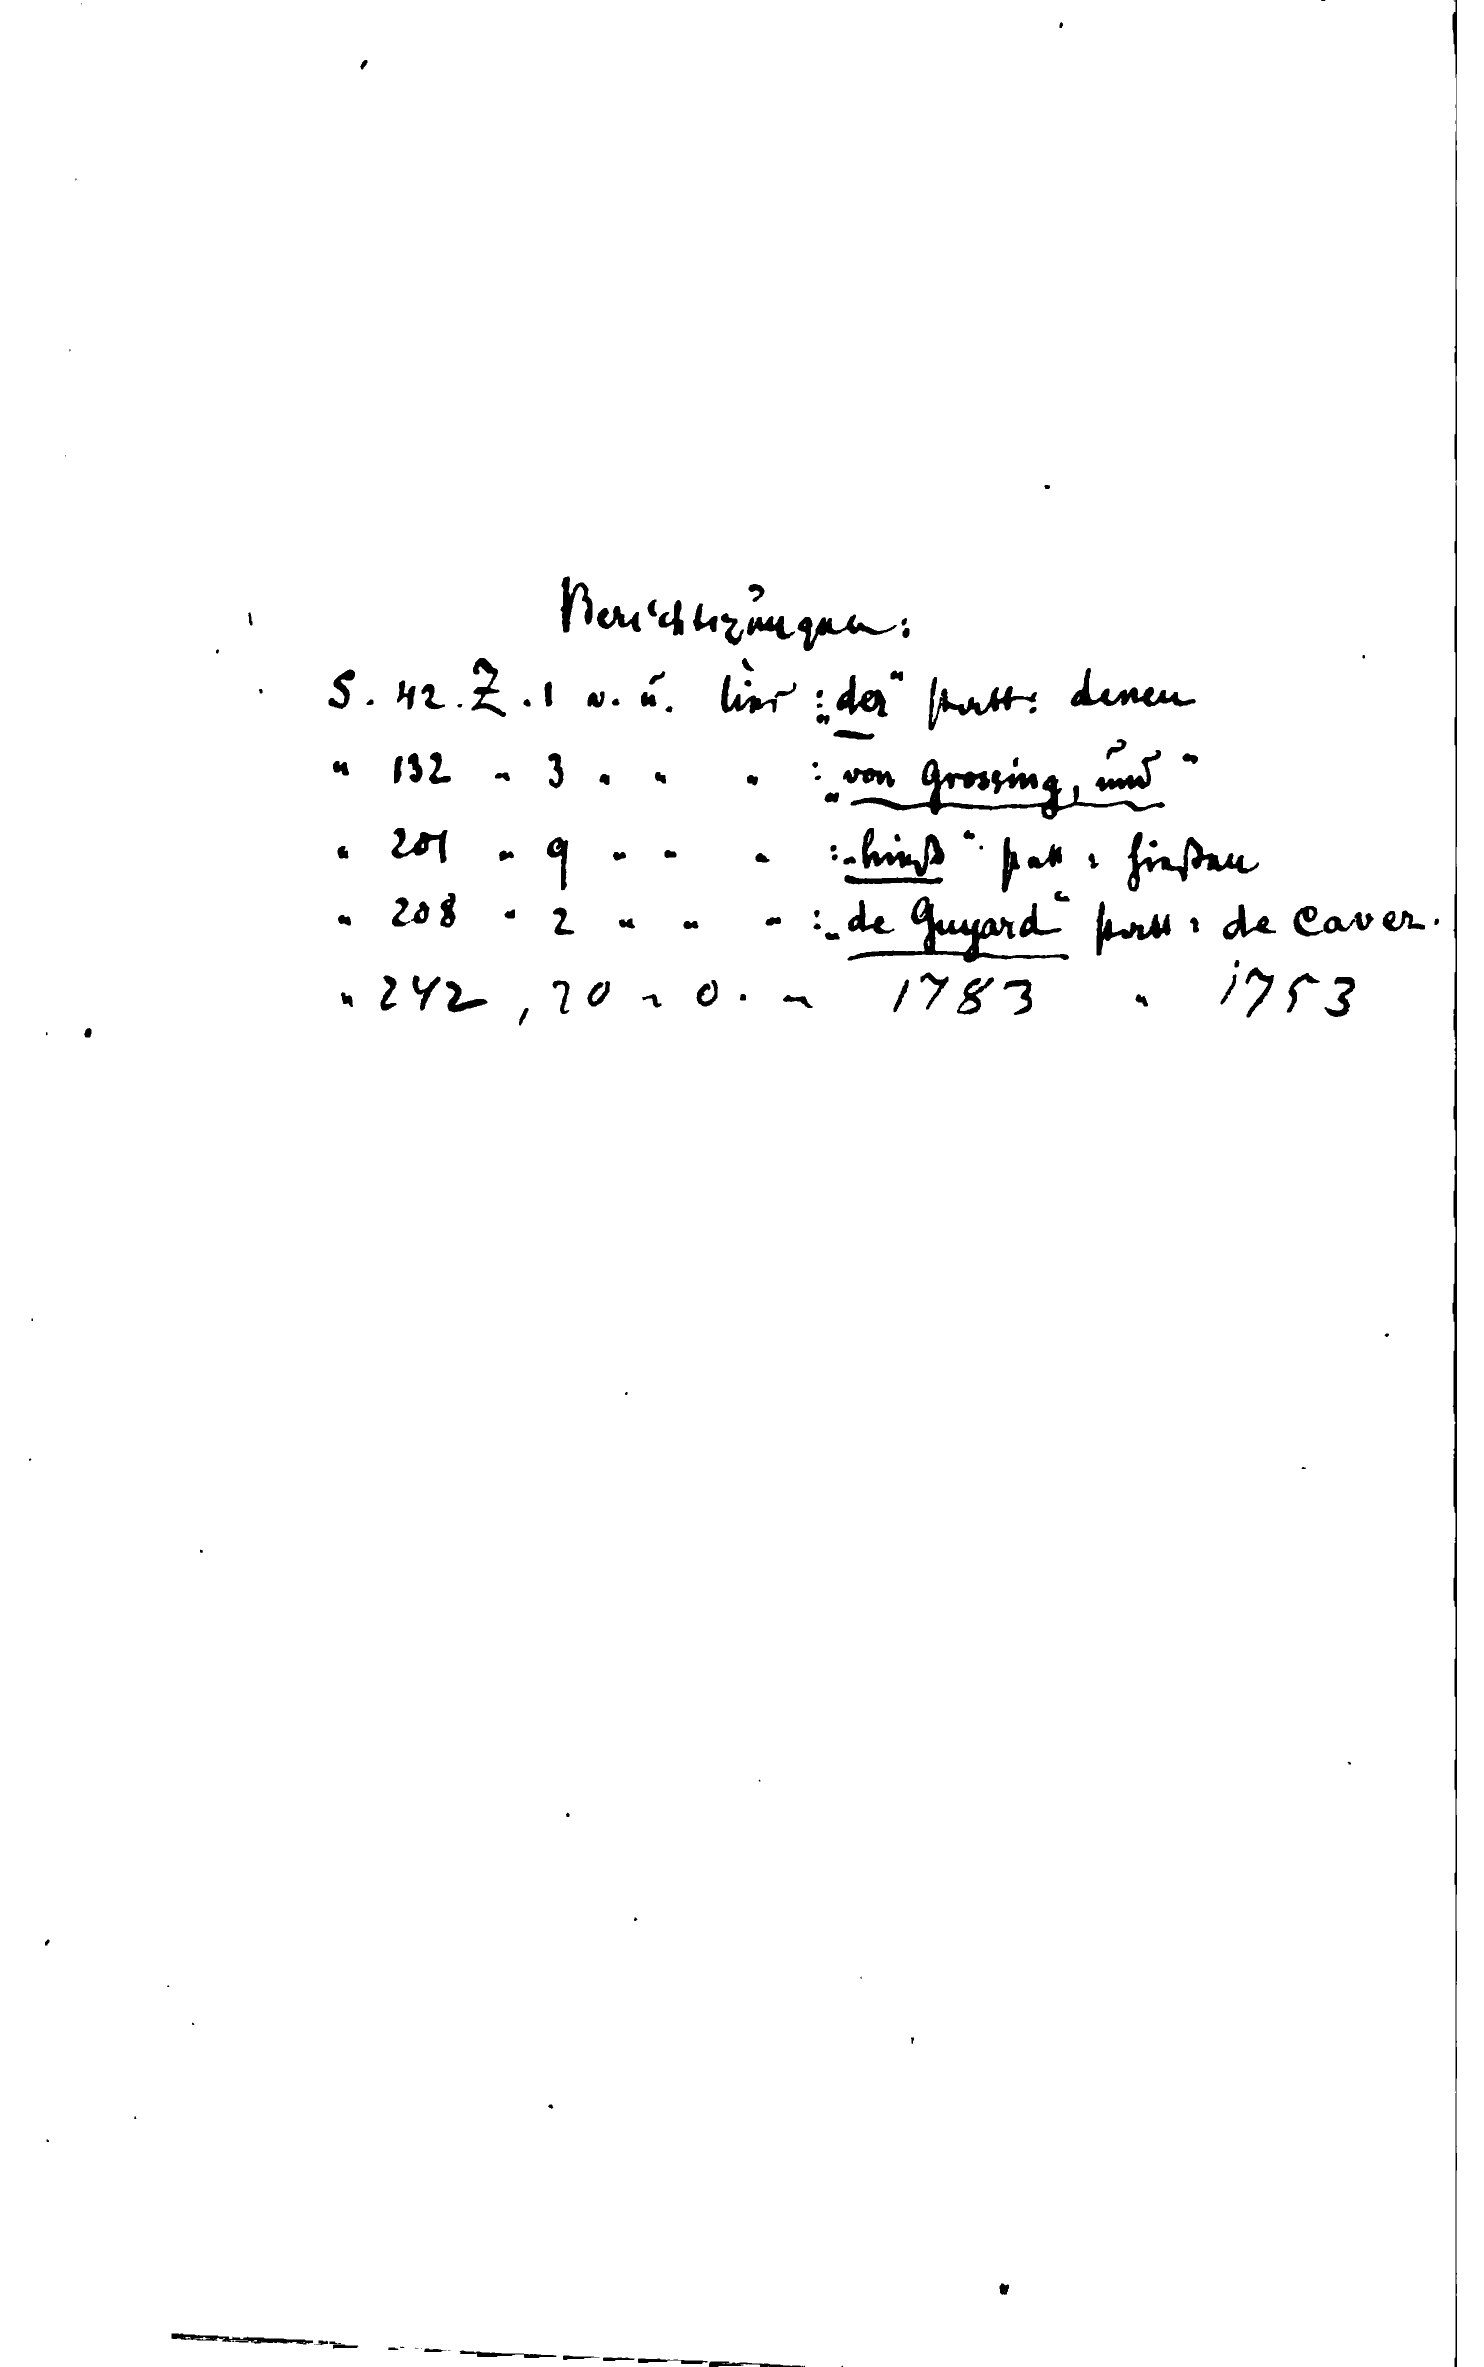 Berichtigungen:
S. 42. Z. 1 v. u. lies : „der“ statt : denen
" 132 " 3 " " " : „von Grossing, und“
" 201 " 9 " " " : „hieß“ statt : hießen
" 208 " 2 " " " : „de Guyard“ statt : de Caver.
" 242, 20 " o. " 1783 " 1753